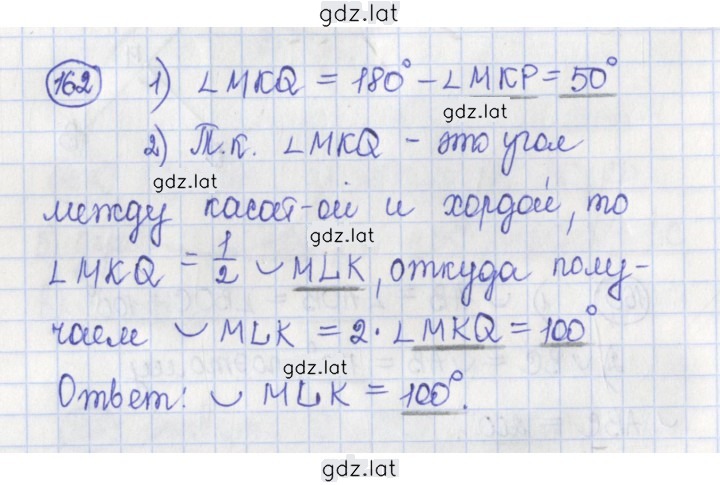 gdz.lat
162 1) ∠MKQ = 180° - ∠MKP = 50°
gdz.lat
2) Т.к. ∠MKQ - это угол
gdz.lat
между касат-ой и хордой, то
gdz.lat
∠MKQ = 1/2 ◡ MLK, откуда полу-
чаем ◡ MLK = 2·∠MKQ = 100°
gdz.lat
Ответ: ◡ MLK = 100°.
gdz.lat